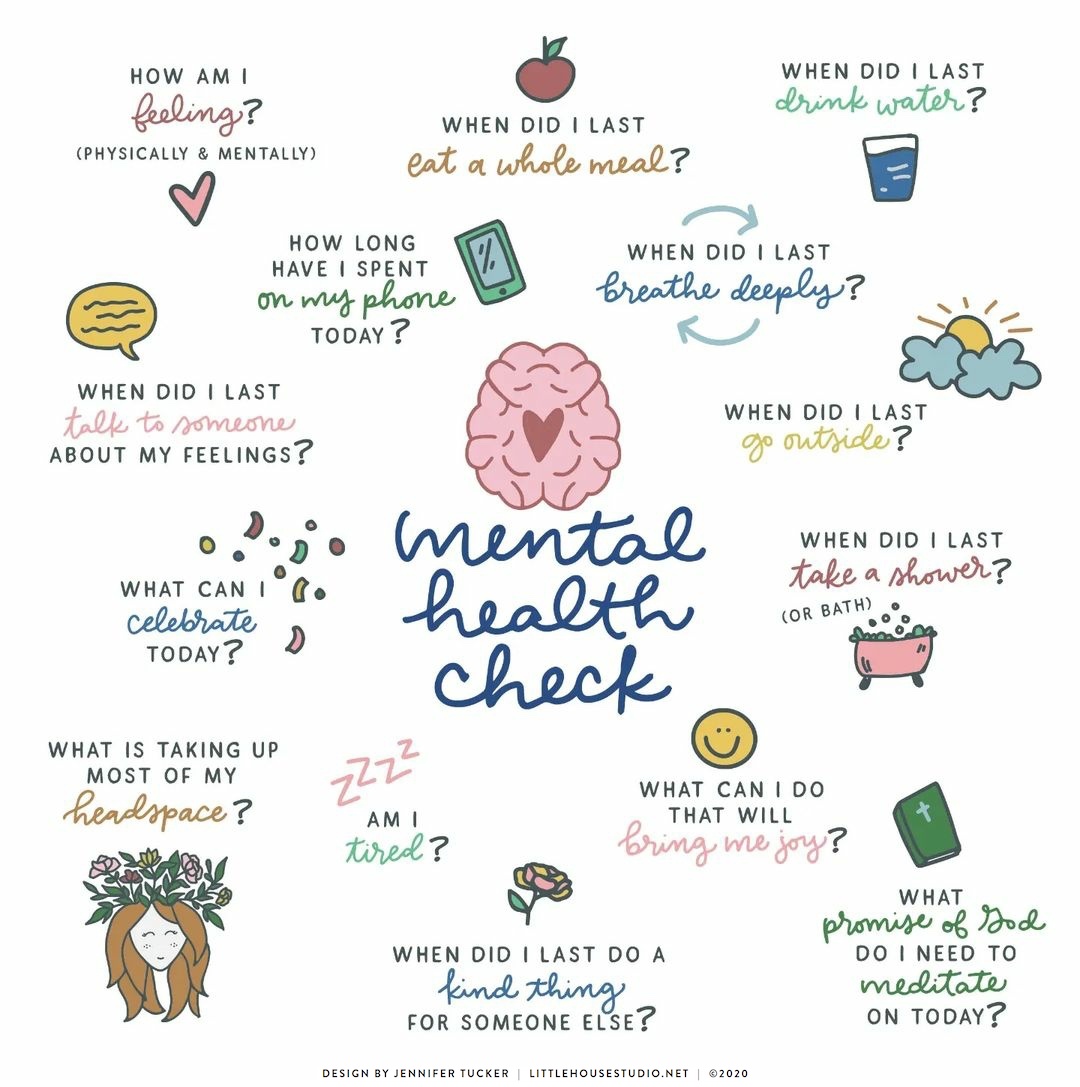 HOW AM I
feeling?
(PHYSICALLY & MENTALLY)
WHEN DID I LAST
eat a whole meal?
WHEN DID I LAST
drink water?
HOW LONG
HAVE I SPENT
on my phone
TODAY?
WHEN DID I LAST
breathe deeply?
WHEN DID I LAST
talk to someone
ABOUT MY FEELINGS?
WHEN DID I LAST
go outside?
mental
health
check
WHAT CAN I
celebrate
TODAY?
WHEN DID I LAST
take a shower?
(OR BATH)
WHAT IS TAKING UP
MOST OF MY
headspace?
ZZZZ
AM I
tired?
WHAT CAN I DO
THAT WILL
bring me joy?
WHEN DID I LAST DO A
kind thing
FOR SOMEONE ELSE?
WHAT
promise of God
DO I NEED TO
meditate
ON TODAY?
DESIGN BY JENNIFER TUCKER | LITTLEHOUSESTUDIO.NET | ©2020